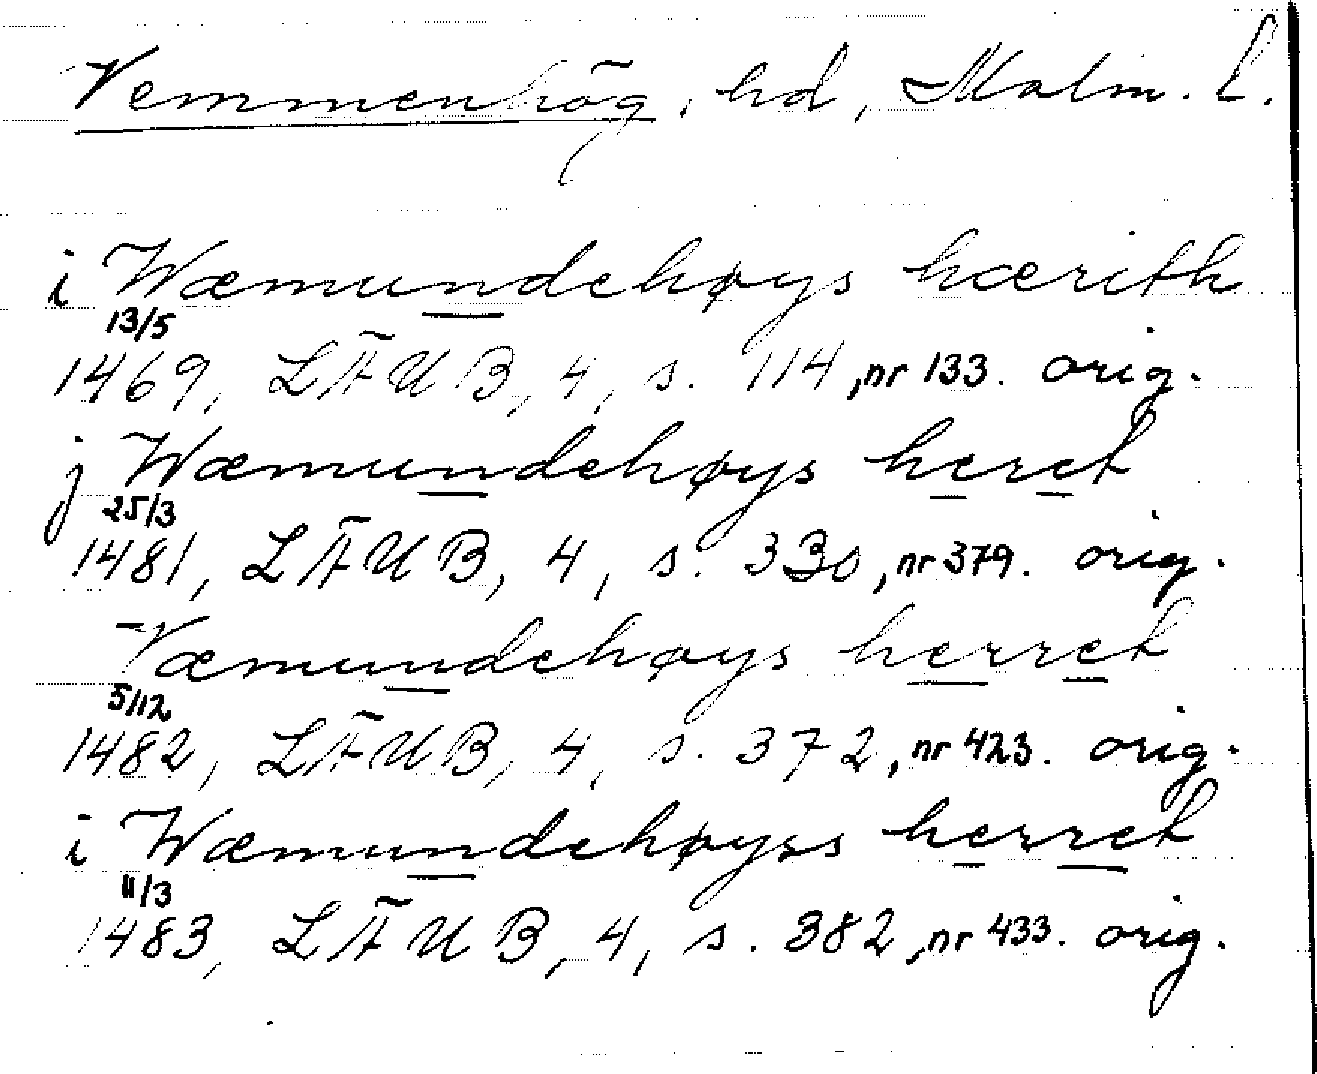 Vemmenhög, hd, Malm. l.
i Wæmundehøys hærith
13/5
1469, LÄUB, 4, s. 114, nr 133. orig.
j Wæmundehøys heret
25/3
1481, LÄUB, 4, s. 330, nr 379. orig.
Væmundehøys herret
5/12
1482, LÄUB, 4, s. 372, nr 423. orig.
i Wæmundehøyss herret
11/3
1483, LÄUB, 4, s. 382, nr 433. orig.